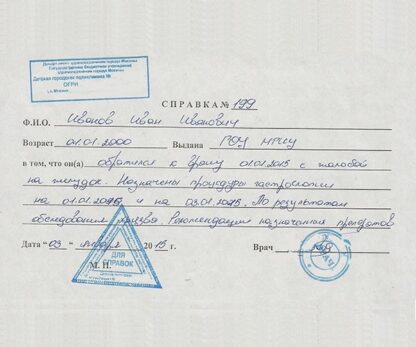 Департамент здравоохранения города Москвы
Государственное бюджетное учреждение
здравоохранения города Москвы
Детская городская поликлиника №
ОГРН
г. Москва
СПРАВКА № 199
Ф.И.О. Иванов Иван Иванович
Возраст 01.01.2000 Выдана РОУ МРИЦ
в том, что он(а) обратился к врачу 01.01.2015 с жалобой
на желудок. Назначены процедуры гастроскопии
на 01.01.2015 и на 03.01.2015. По результатам
обследования язва. Рекомендации назначения препаратов
Дата "03" января 2015 г. Врач
М. П.
ДЛЯ
СПРАВОК
ВРАЧ